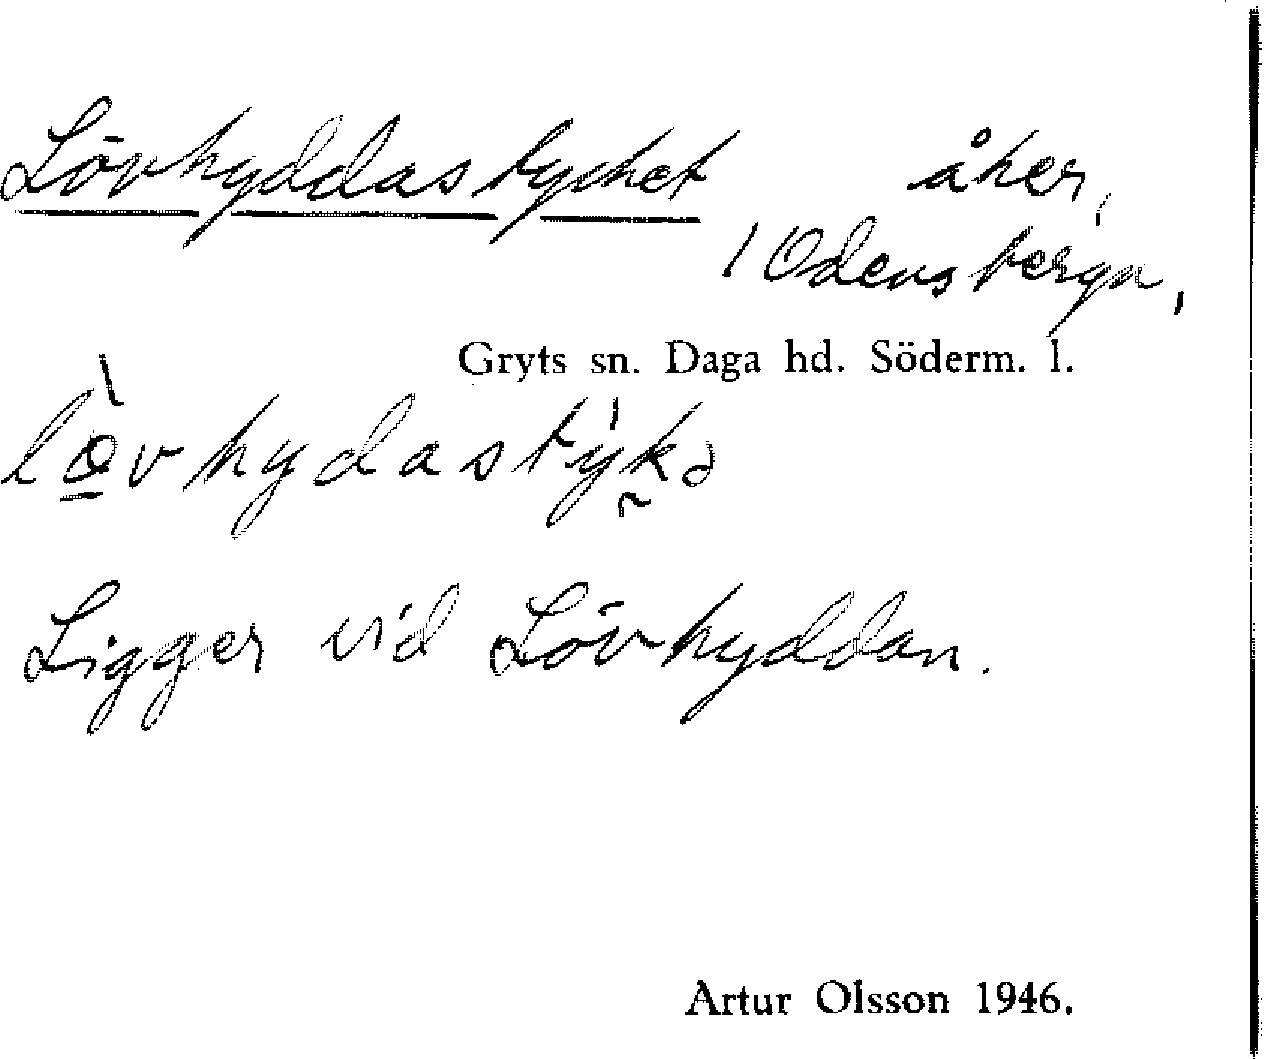 Lövhyddastycket åker,
1 Odensberga,
Gryts sn. Daga hd. Söderm. l.
lævhydastykə
Ligger vid Lövhyddan.
Artur Olsson 1946.